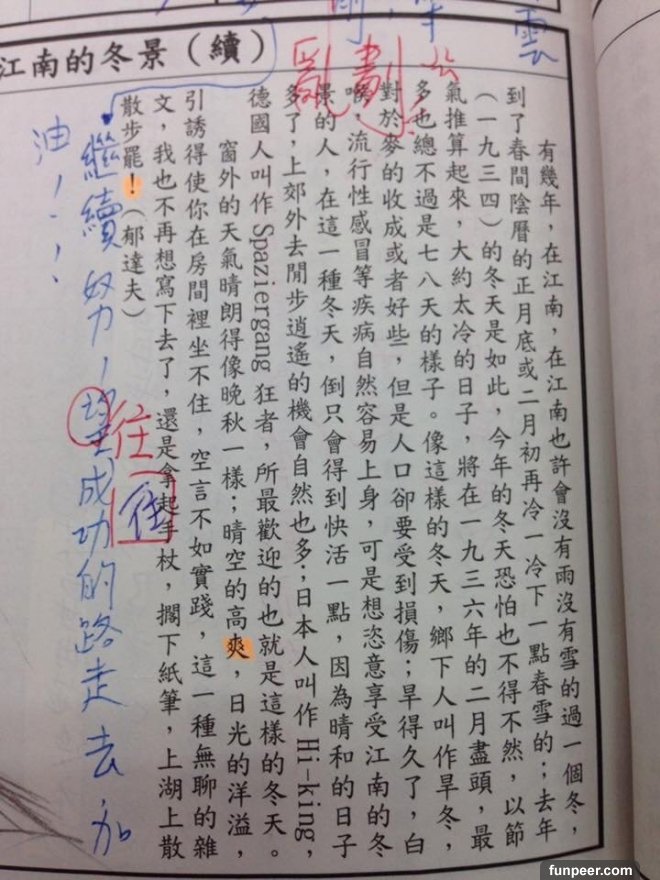 雲
江南的冬景（續）
亂劃
有幾年，在江南，在江南也許會沒有雨沒有雪的過一個冬，
到了春間陰曆的正月底或二月初再冷一冷下一點春雪的；去年
（一九三四）的冬天是如此，今年的冬天恐怕也不得不然，以節
氣推算起來，大約太冷的日子，將在一九三六年的二月盡頭，最
多也總不過是七八天的樣子。像這樣的冬天，鄉下人叫作旱冬，
對於麥的收成或者好些，但是人口卻要受到損傷；旱得久了，白
喉，流行性感冒等疾病自然容易上身，可是想恣意享受江南的冬
景的人，在這一種冬天，倒只會得到快活一點，因為晴和的日子
多了，上郊外去閒步逍遙的機會自然也多；日本人叫作 Hi-king，
德國人叫作 Spaziergang 狂者，所最歡迎的也就是這樣的冬天。
窗外的天氣晴朗得像晚秋一樣；晴空的高爽，日光的洋溢，
引誘得使你在房間裡坐不住，空言不如實踐，這一種無聊的雜
文，我也不再想寫下去了，還是拿起手杖，擱下紙筆，上湖上散
散步罷！（郁達夫）
往
往
繼續努力，成功的路走去，加
油！！
funpeer.com